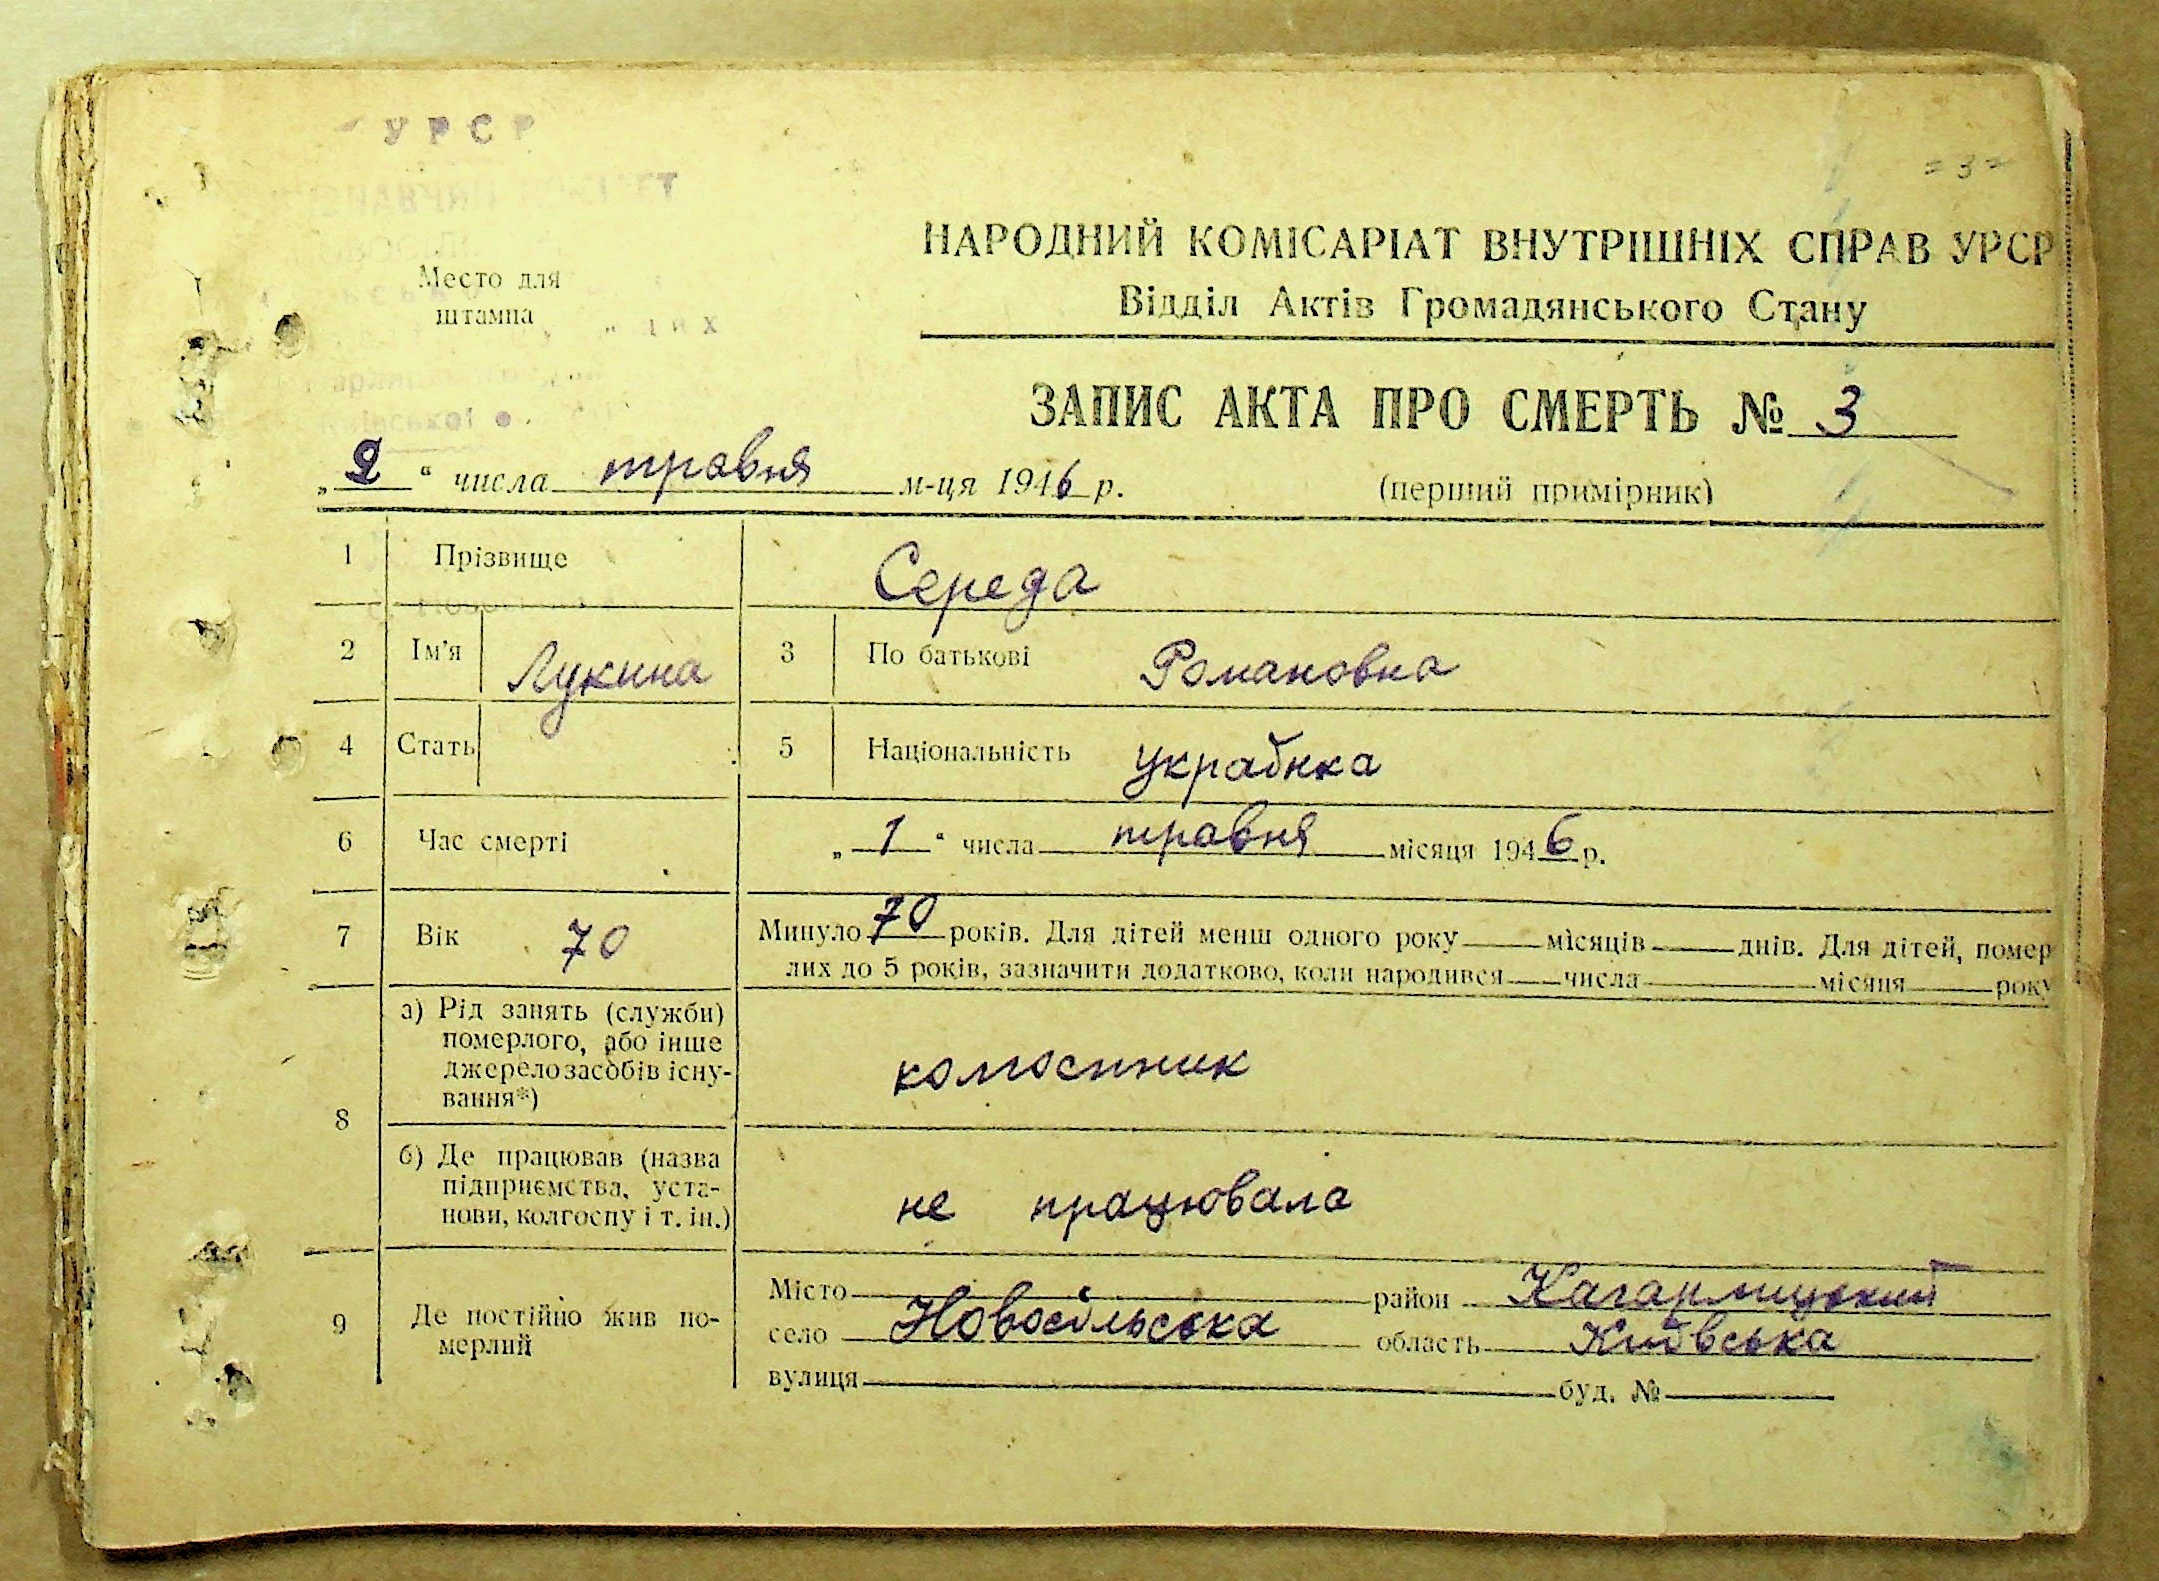 УРСР
= 3 =
НАРОДНИЙ КОМІСАРІАТ ВНУТРІШНІХ СПРАВ УРСР
Место для
штампа
Відділ Актів Громадянського Стану
Київської
ЗАПИС АКТА ПРО СМЕРТЬ № 3
„2“ числа травня м-ця 1946 р. (перший примірник)
1 Прізвище Середа
2 Ім'я Лукина 3 По батькові Романовна
4 Стать 5 Національність українка
6 Час смерті „1“ числа травня місяця 1946 р.
7 Вік 70 Минуло 70 років. Для дітей менш одного року місяців днів. Для дітей, помер
лих до 5 років, зазначити додатково, коли народився числа місяця року
8
а) Рід занять (служби)
померлого, або інше
джерело засобів існу-
вання*)
колгоспник
б) Де працював (назва
підприємства, уста-
нови, колгоспу і т. ін.)
не працювала
9 Де постійно жив по-
мерлий
Місто район Кагарлицький
село Новосільська область Київська
вулиця буд. №